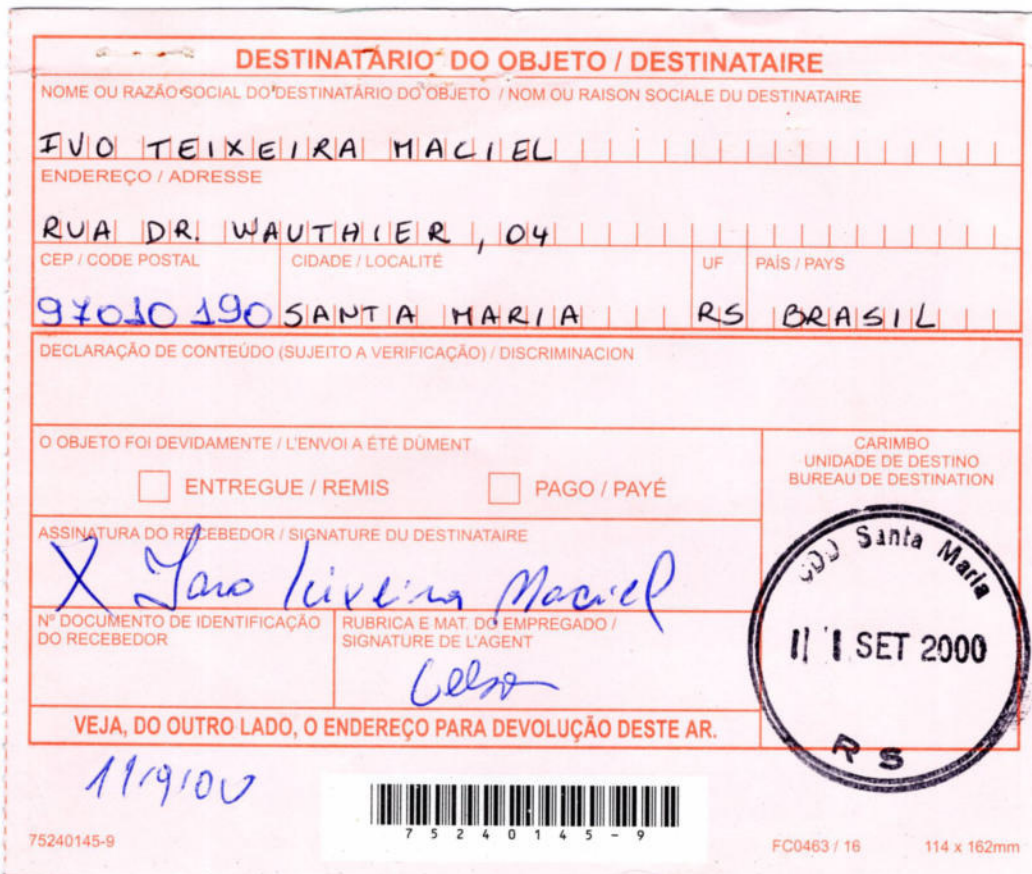 DESTINATÁRIO DO OBJETO / DESTINATAIRE
NOME OU RAZÃO SOCIAL DO DESTINATÁRIO DO OBJETO / NOM OU RAISON SOCIALE DU DESTINATAIRE
IVO TEIXEIRA MACIEL
ENDEREÇO / ADRESSE
RUA DR. WAUTHIER, 04
CEP / CODE POSTAL CIDADE / LOCALITÉ UF PAÍS / PAYS
97010190 SANTA MARIA RS BRASIL
DECLARAÇÃO DE CONTEÚDO (SUJEITO A VERIFICAÇÃO) / DISCRIMINACION
O OBJETO FOI DEVIDAMENTE / L'ENVOI A ÉTÉ DÛMENT
ENTREGUE / REMIS PAGO / PAYÉ
CARIMBO
UNIDADE DE DESTINO
BUREAU DE DESTINATION
ASSINATURA DO RECEBEDOR / SIGNATURE DU DESTINATAIRE
X Teixeira Maciel
CDD Santa Maria
11 SET 2000
RS
Nº DOCUMENTO DE IDENTIFICAÇÃO
DO RECEBEDOR
RUBRICA E MAT. DO EMPREGADO /
SIGNATURE DE L'AGENT
Celso
VEJA, DO OUTRO LADO, O ENDEREÇO PARA DEVOLUÇÃO DESTE AR.
11/9/00
75240145-9
75240145-9
FC0463 / 16
114 x 162mm